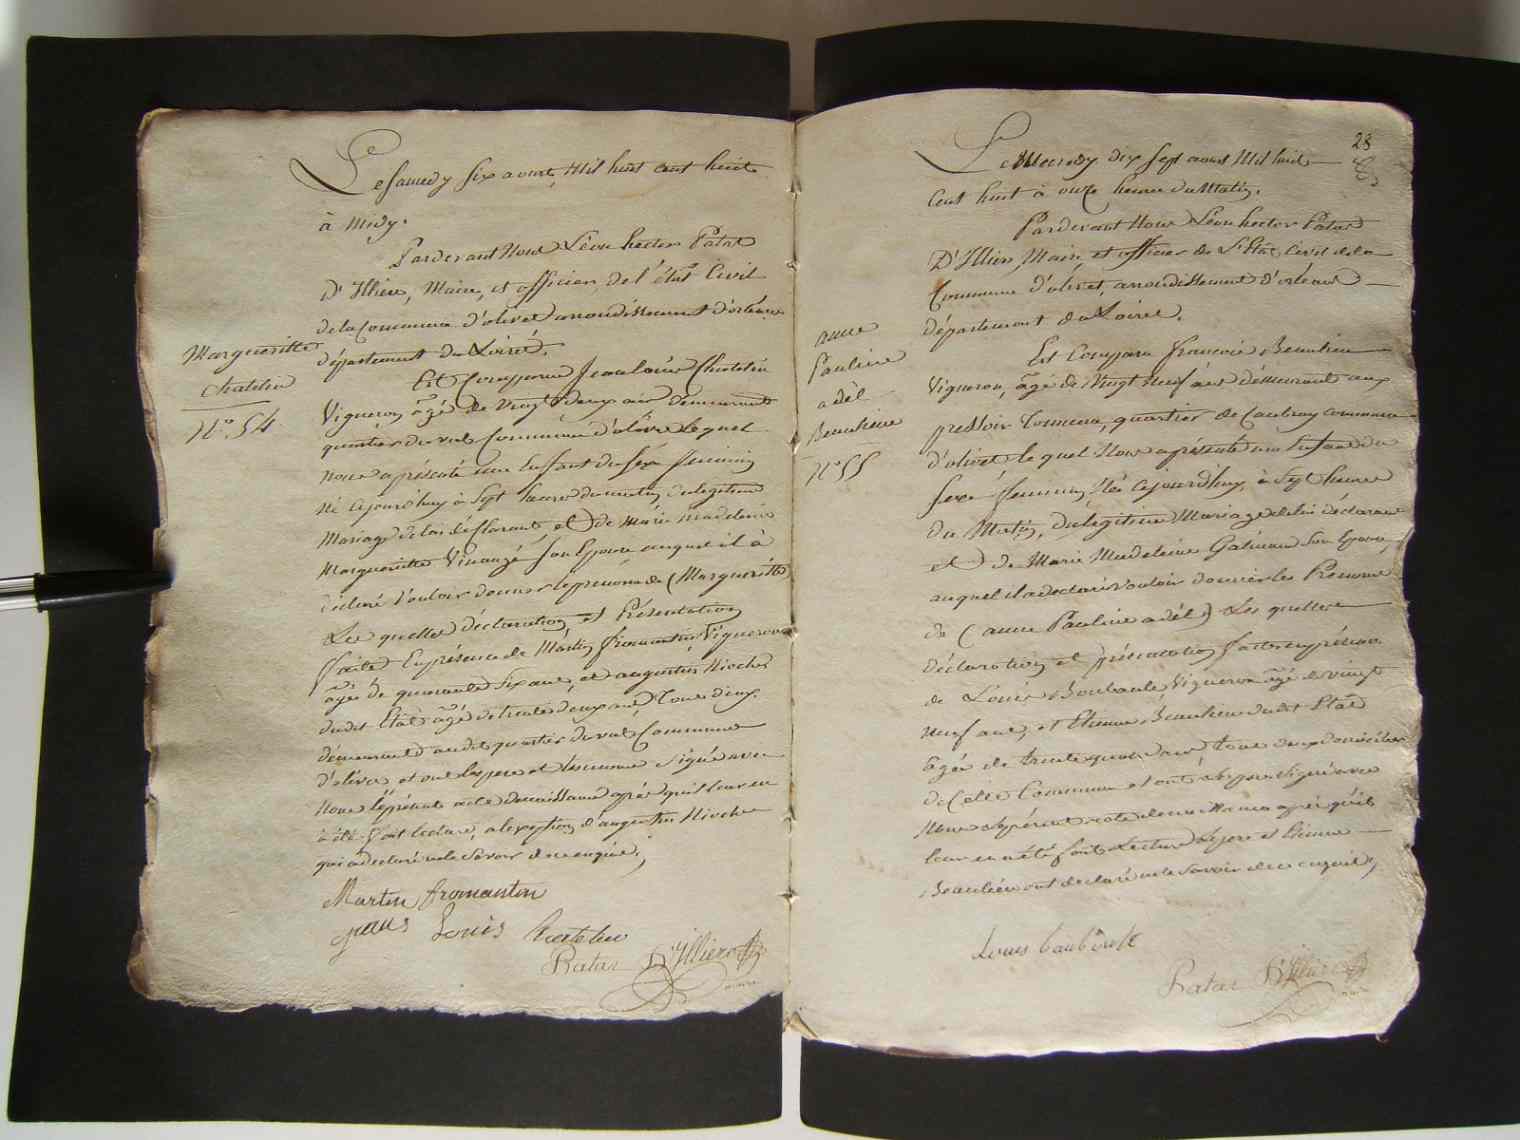 Le Samedy Six aoust, Mil huit cent huit
à Midy.
Pardevant Nous Léon hector Patas
D'Illiers, Maire, et officier de l'état Civil
de la Commune d'olivet arrondissement d'orléans
département du Loiret.
Margueritte
Chatelin
N° 54
Est Comparu Jean louis Chatelin
Vigneron âgé de vingt deux ans demeurant
quartier du val Commune d'olivet lequel
nous a présenté un Enfant du sexe feminin
Né ajourdhuy à Sept heures du matin du legitime
Mariage de lui déclarant, et de Marie Madeleine
Margueritte Son Epouse auquel il à
déclaré Vouloir donner le prenom de (Margueritte)
Les quelles déclaration et Présentation
faites En présence de Martin fromentin Vigneron
âgé de quarante Six ans, et augustin
dudit Etat âgé de trente deux ans Tous deux
démeurant audit quartier du val Commune
d'olivet et ont les pere et temoins Signé avec
Nous le présent acte de naissance après qu'il leur en
à été fait lecture, a l'exception d'augustin
qui a declaré ne le Savoir de ce enquis;
Martin fromantin
Louis
Patas D'Illiers
28
Le Mercredy dix Sept aoust Mil huit
Cent huit à onze heures du Matin.
Pardevant Nous Léon hector Patas
D'Illiers, Maire, et officier de L'Etat Civil de la
Commune d'olivet, arrondissement d'orléans
département du Loiret.
anne
Pauline
adèl
Beaulieu
N° 55
Est Comparu françois Beaulieu
Vigneron, âgé de Vingt Neuf ans démeurant aux
pressoir quartier de Caubray commune
d'olivet, lequel Nous a présenté un Enfant du
Sexe feminin, Né ajourdhuy, à Sept heures
du Matin, du legitime Mariage de lui déclarant
et de Marie Madeleine Son Epouse,
auquel il a declaré vouloir donner les Prenoms
de (anne Pauline adèl) Les quelles
déclaration et présentation faites en présence
de Louis Vigneron âgé de vingt
Neuf ans, et Etienne Beaulieu dudit Etat
âgé de trente ans tous deux domiciliés
de Cette Commune et ont Signé avec
Nous le présent acte de naissance après qu'il
leur en a été fait Lecture le pere et Etienne
Beaulieu ont declaré ne le savoir de ce enquis;
Louis
Patas D'Illiers